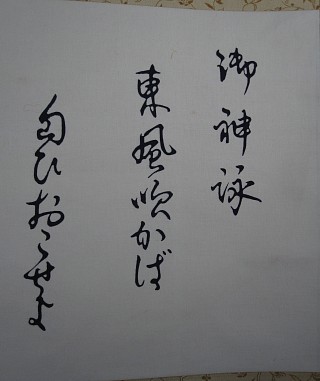 御神詠
東風吹かば
匂ひおこせよ